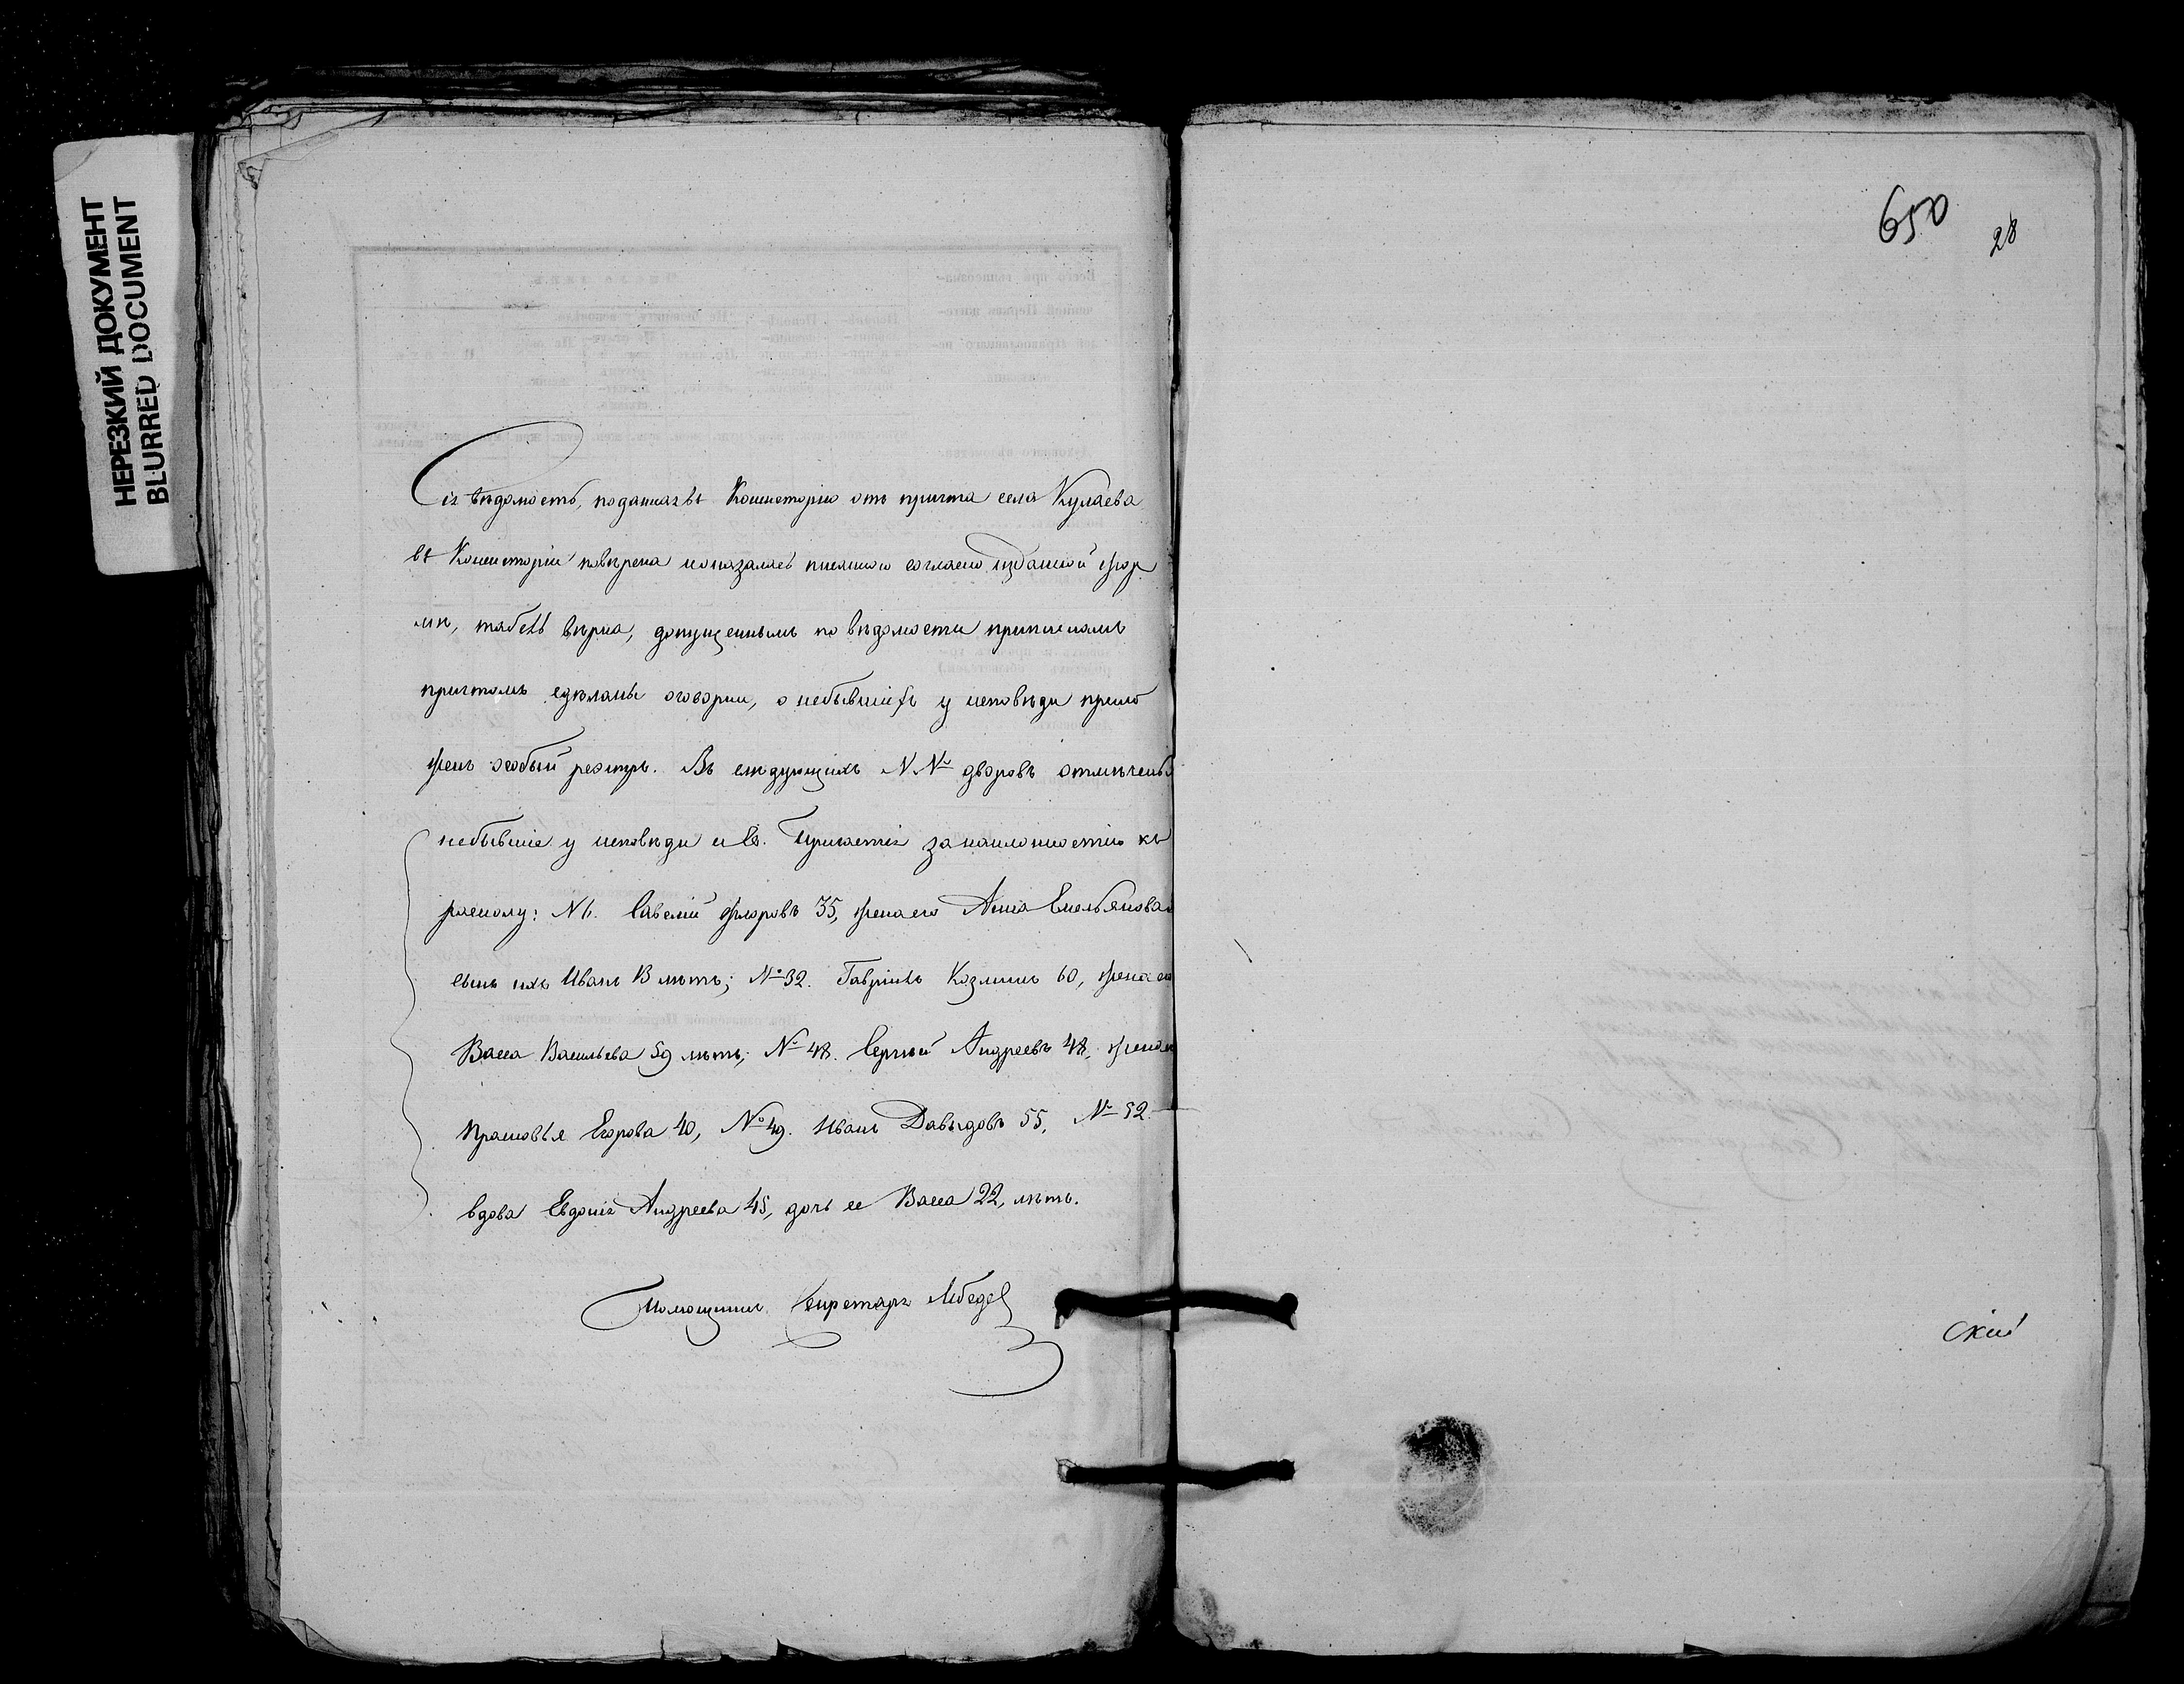 НЕРЕЗКИЙ ДОКУМЕНТ
BLURRED DOCUMENT
Сія вѣдомость, поданная въ Консисторію отъ причта села Кулаева
въ Консисторіи повѣрена и оказалась писанною согласно изданной фор
мѣ, табель вѣрна, допущеннымъ по вѣдомости припискамъ
причтомъ сдѣланы оговорки, о небывшихъ у исповѣди прило
женъ особый реэстръ. Въ слѣдующихъ №№ дворовъ отмѣчены
небывшіе у исповѣди и Св. Причастія за наклонностію къ
расколу: № 6. Савелій Флоровъ 35, жена его Анна Емельянова
сынъ ихъ Иванъ 13 лѣтъ; № 32. Гавріилъ Козминъ 60, жена его
Васса Васильева 59 лѣтъ; № 48. Сергѣй Андреевъ 48, жена его
Прасковья Егорова 40, № 49. Иванъ Давыдовъ 55, № 52
вдова Евдокія Андреева 45, дочь ее Васса 22, лѣтъ.
Помощникъ Секретаря Лебедев
650
28
скій